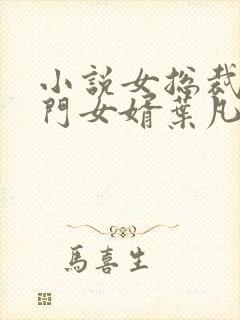 小説女總裁
門女婿葉凡
馬喜生